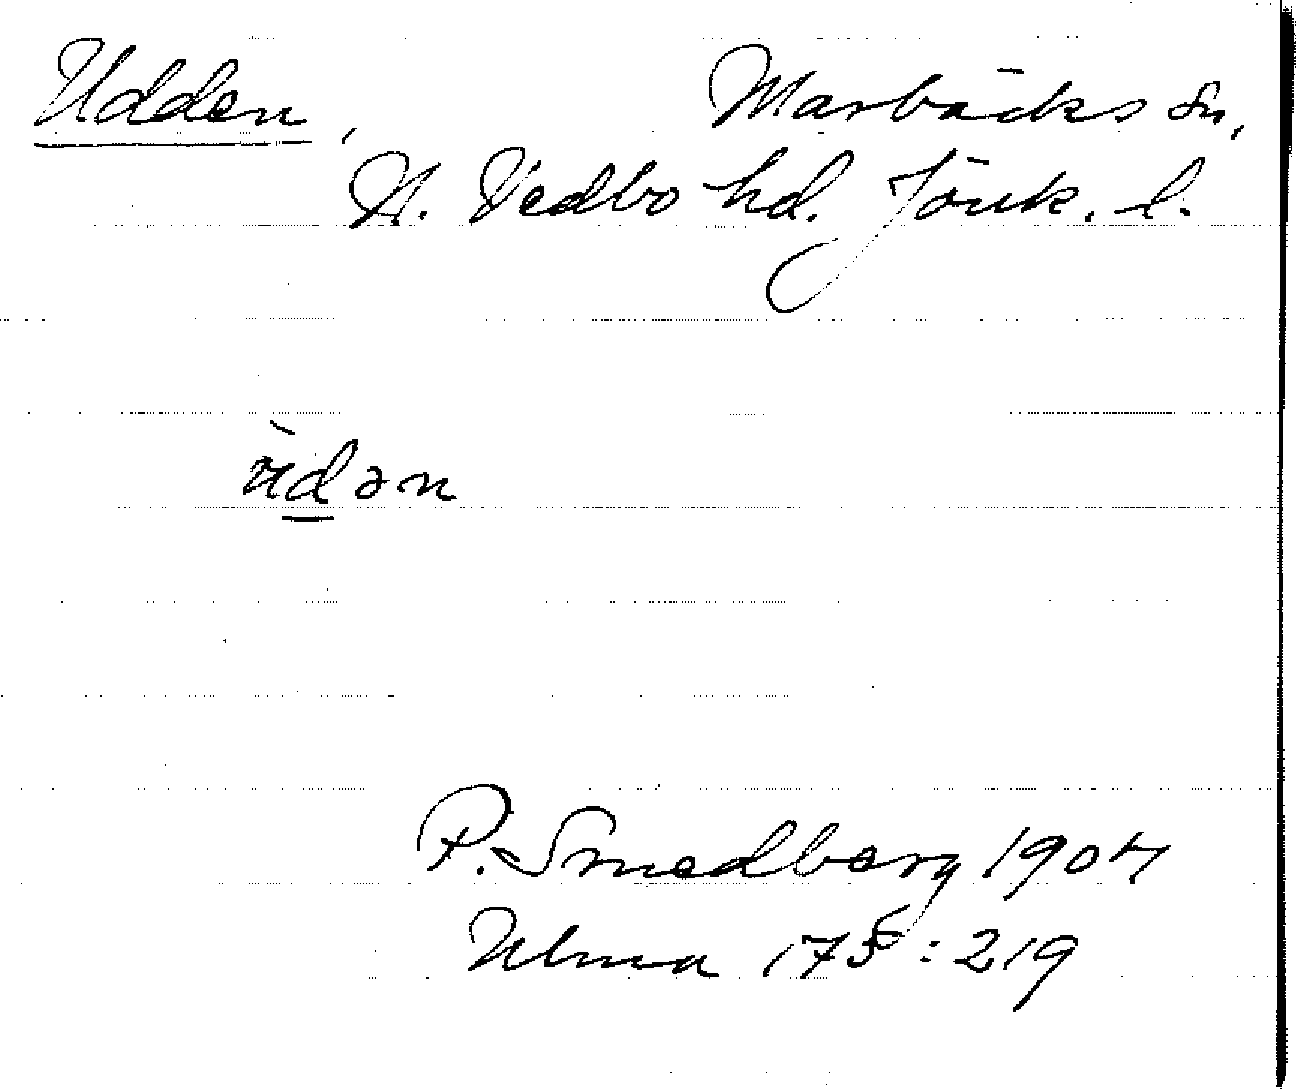 Udden, Marbäcks sn,
N. Vedbo hd. Jönk. l.
ùdən
P. Smedberg 1904
Ulma 175:219